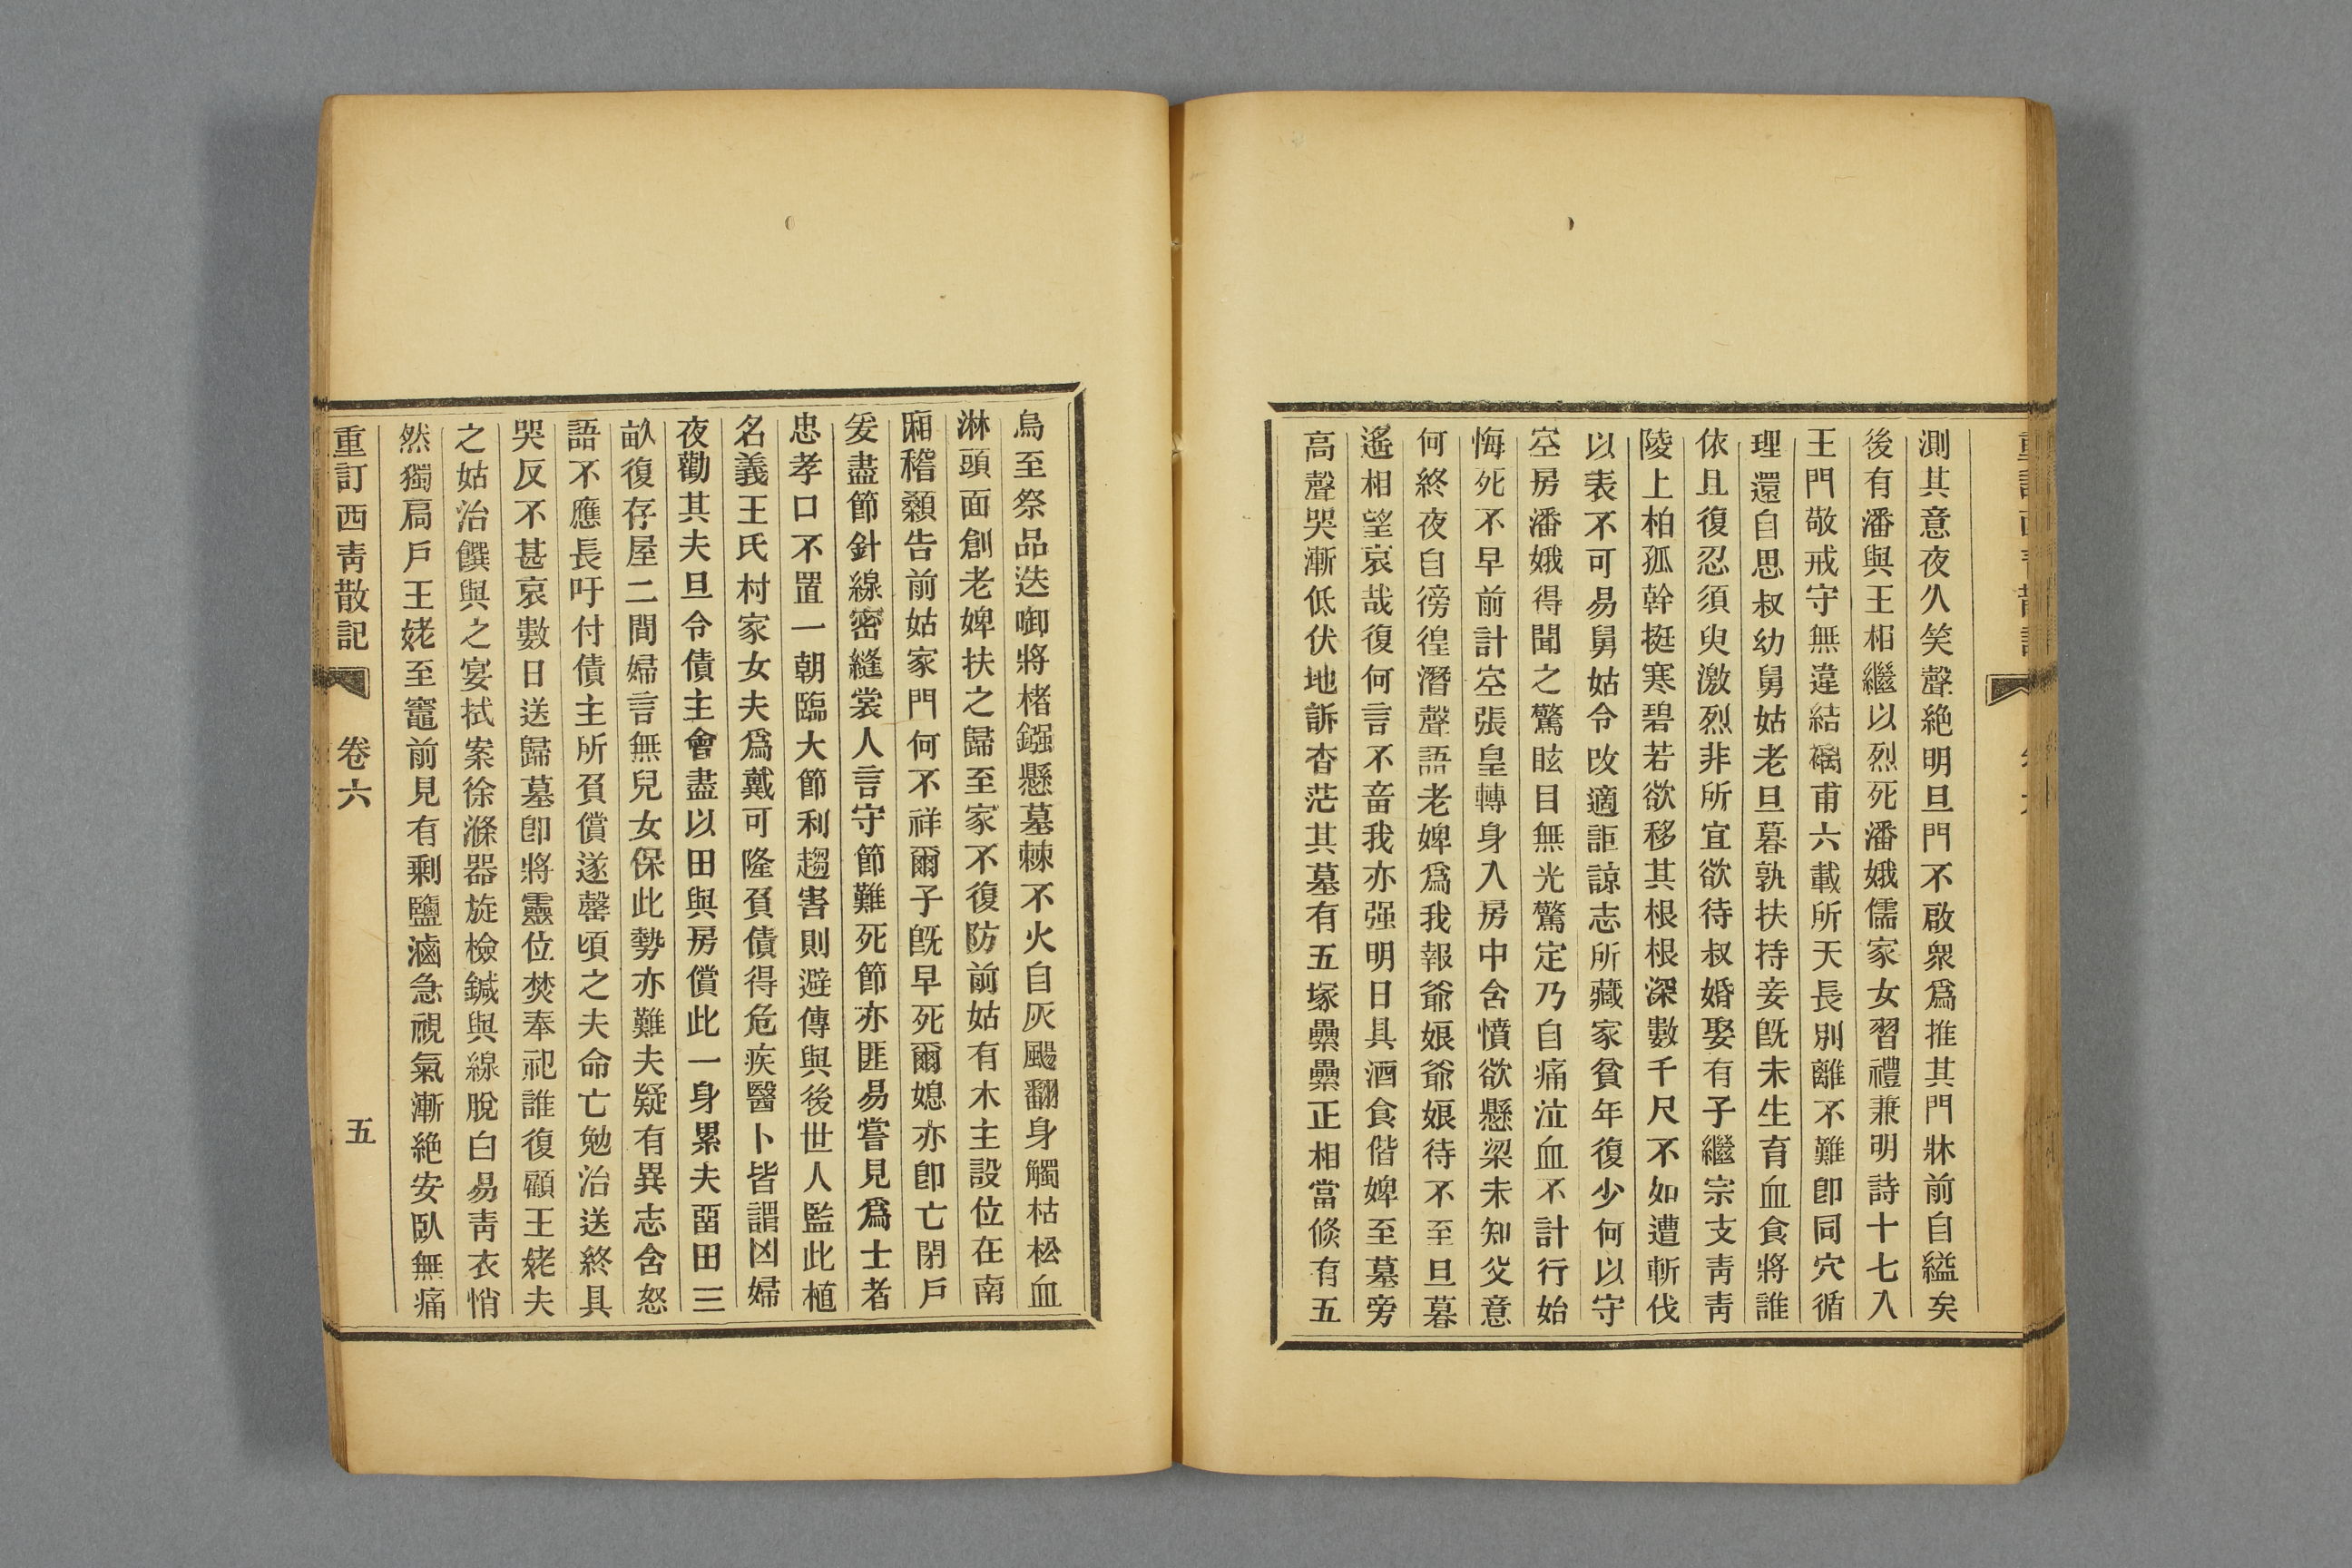 測其意夜久笑聲絶明旦門不啟衆爲推其門牀前自縊矣
後有潘與王相繼以烈死潘娥儒家女習禮兼明詩十七入
王門敬戒守無違結褵甫六載所天長別離不難卽同穴循
理還自思叔幼舅姑老旦暮孰扶持妾旣未生育血食將誰
依且復忍須臾激烈非所宜欲待叔婚娶有子繼宗支靑靑
陵上柏孤幹挺寒碧若欲移其根根深數千尺不如遭斬伐
以表不可易舅姑令改適詎諒志所藏家貧年復少何以守
空房潘娥得聞之驚眩目無光驚定乃自痛泣血不計行始
悔死不早前計空張皇轉身入房中含憤欲懸梁未知父意
何終夜自徬徨潛聲語老婢爲我報爺娘爺娘待不至旦暮
遙相望哀哉復何言不畜我亦强明日具酒食偕婢至墓旁
高聲哭漸低伏地訴杳茫其墓有五塚纍纍正相當倏有五
烏至祭品迭啣將楮鏹懸墓棘不火自灰颺翻身觸枯松血
淋頭面創老婢扶之歸至家不復防前姑有木主設位在南
廂稽顙告前姑家門何不祥爾子旣早死爾媳亦卽亡閉戶
爰盡節針線密縫裳人言守節難死節亦匪易嘗見爲士者
忠孝口不置一朝臨大節利趨害則避傳與後世人監此植
名義王氏村家女夫爲戴可隆負債得危疾醫卜皆謂凶婦
夜勸其夫旦令債主會盡以田與房償此一身累夫畱田三
畝復存屋二間婦言無兒女保此勢亦難夫疑有異志含怒
語不應長吁付債主所負償遂罄頃之夫命亡勉治送終具
哭反不甚哀數日送歸墓卽將靈位焚奉祀誰復顧王姥夫
之姑治饌與之宴拭案徐滌器旋檢鍼與線脫白易靑衣悄
然獨扃戶王姥至竈前見有剩鹽滷急視氣漸絶安臥無痛
重訂西靑散記 卷六 五